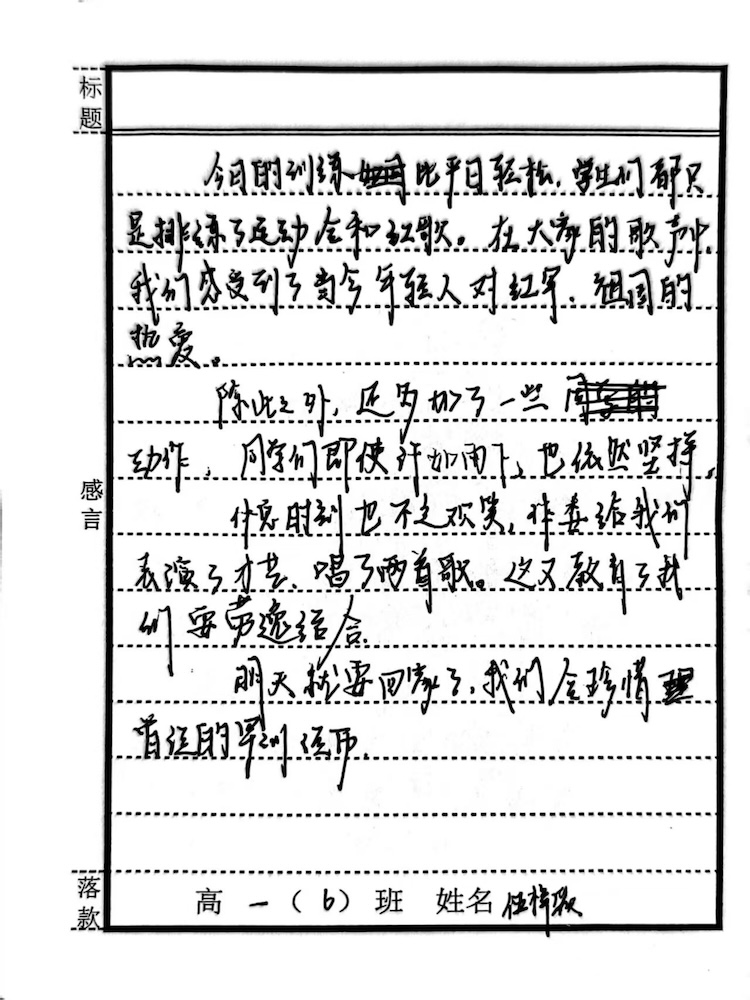 标题
今日的训练比平日轻松，学生们都只
是排练了运动会和红歌。在大家的歌声中，
我们感受到了当今年轻人对红军、祖国的
热爱。
除此之外，还多加了一些
动作，同学们即使汗如雨下，也依然坚持。
感言
休息时刻也不乏欢笑，班委给我们
表演了才艺，唱了两首歌。这又教育了我
们要劳逸结合。
明天就要回家了，我们会珍惜
曾经的军训经历。
落款
高一（6）班 姓名 任梓